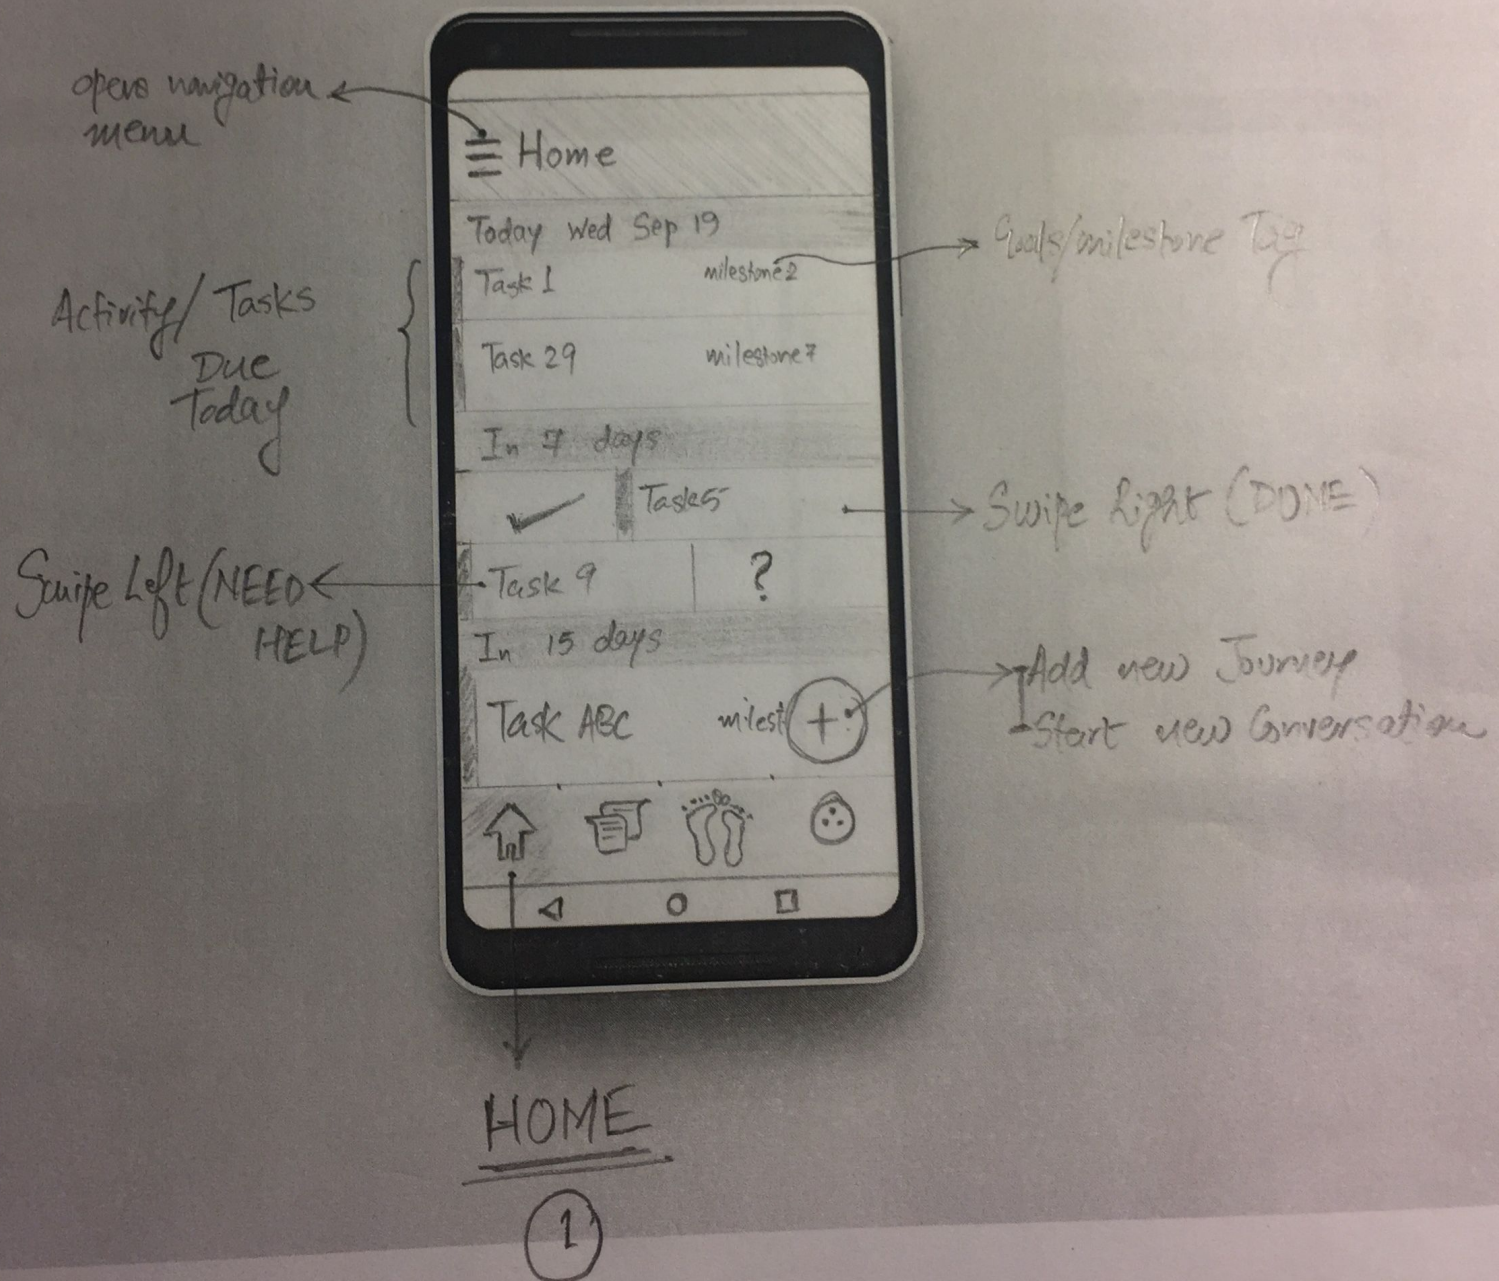 opens navigation
menu
Home
Today Wed Sep 19
Task 1 milestone2
Goals/milestone Tag
Activity/Tasks
Due
Today
Task 29 milestone7
In 7 days
Task5
Swipe Right (DONE)
Task 9 ?
Swipe Left (NEED
HELP)
In 15 days
Task ABC milest +
-Add new Journey
-Start new Conversation
HOME
1